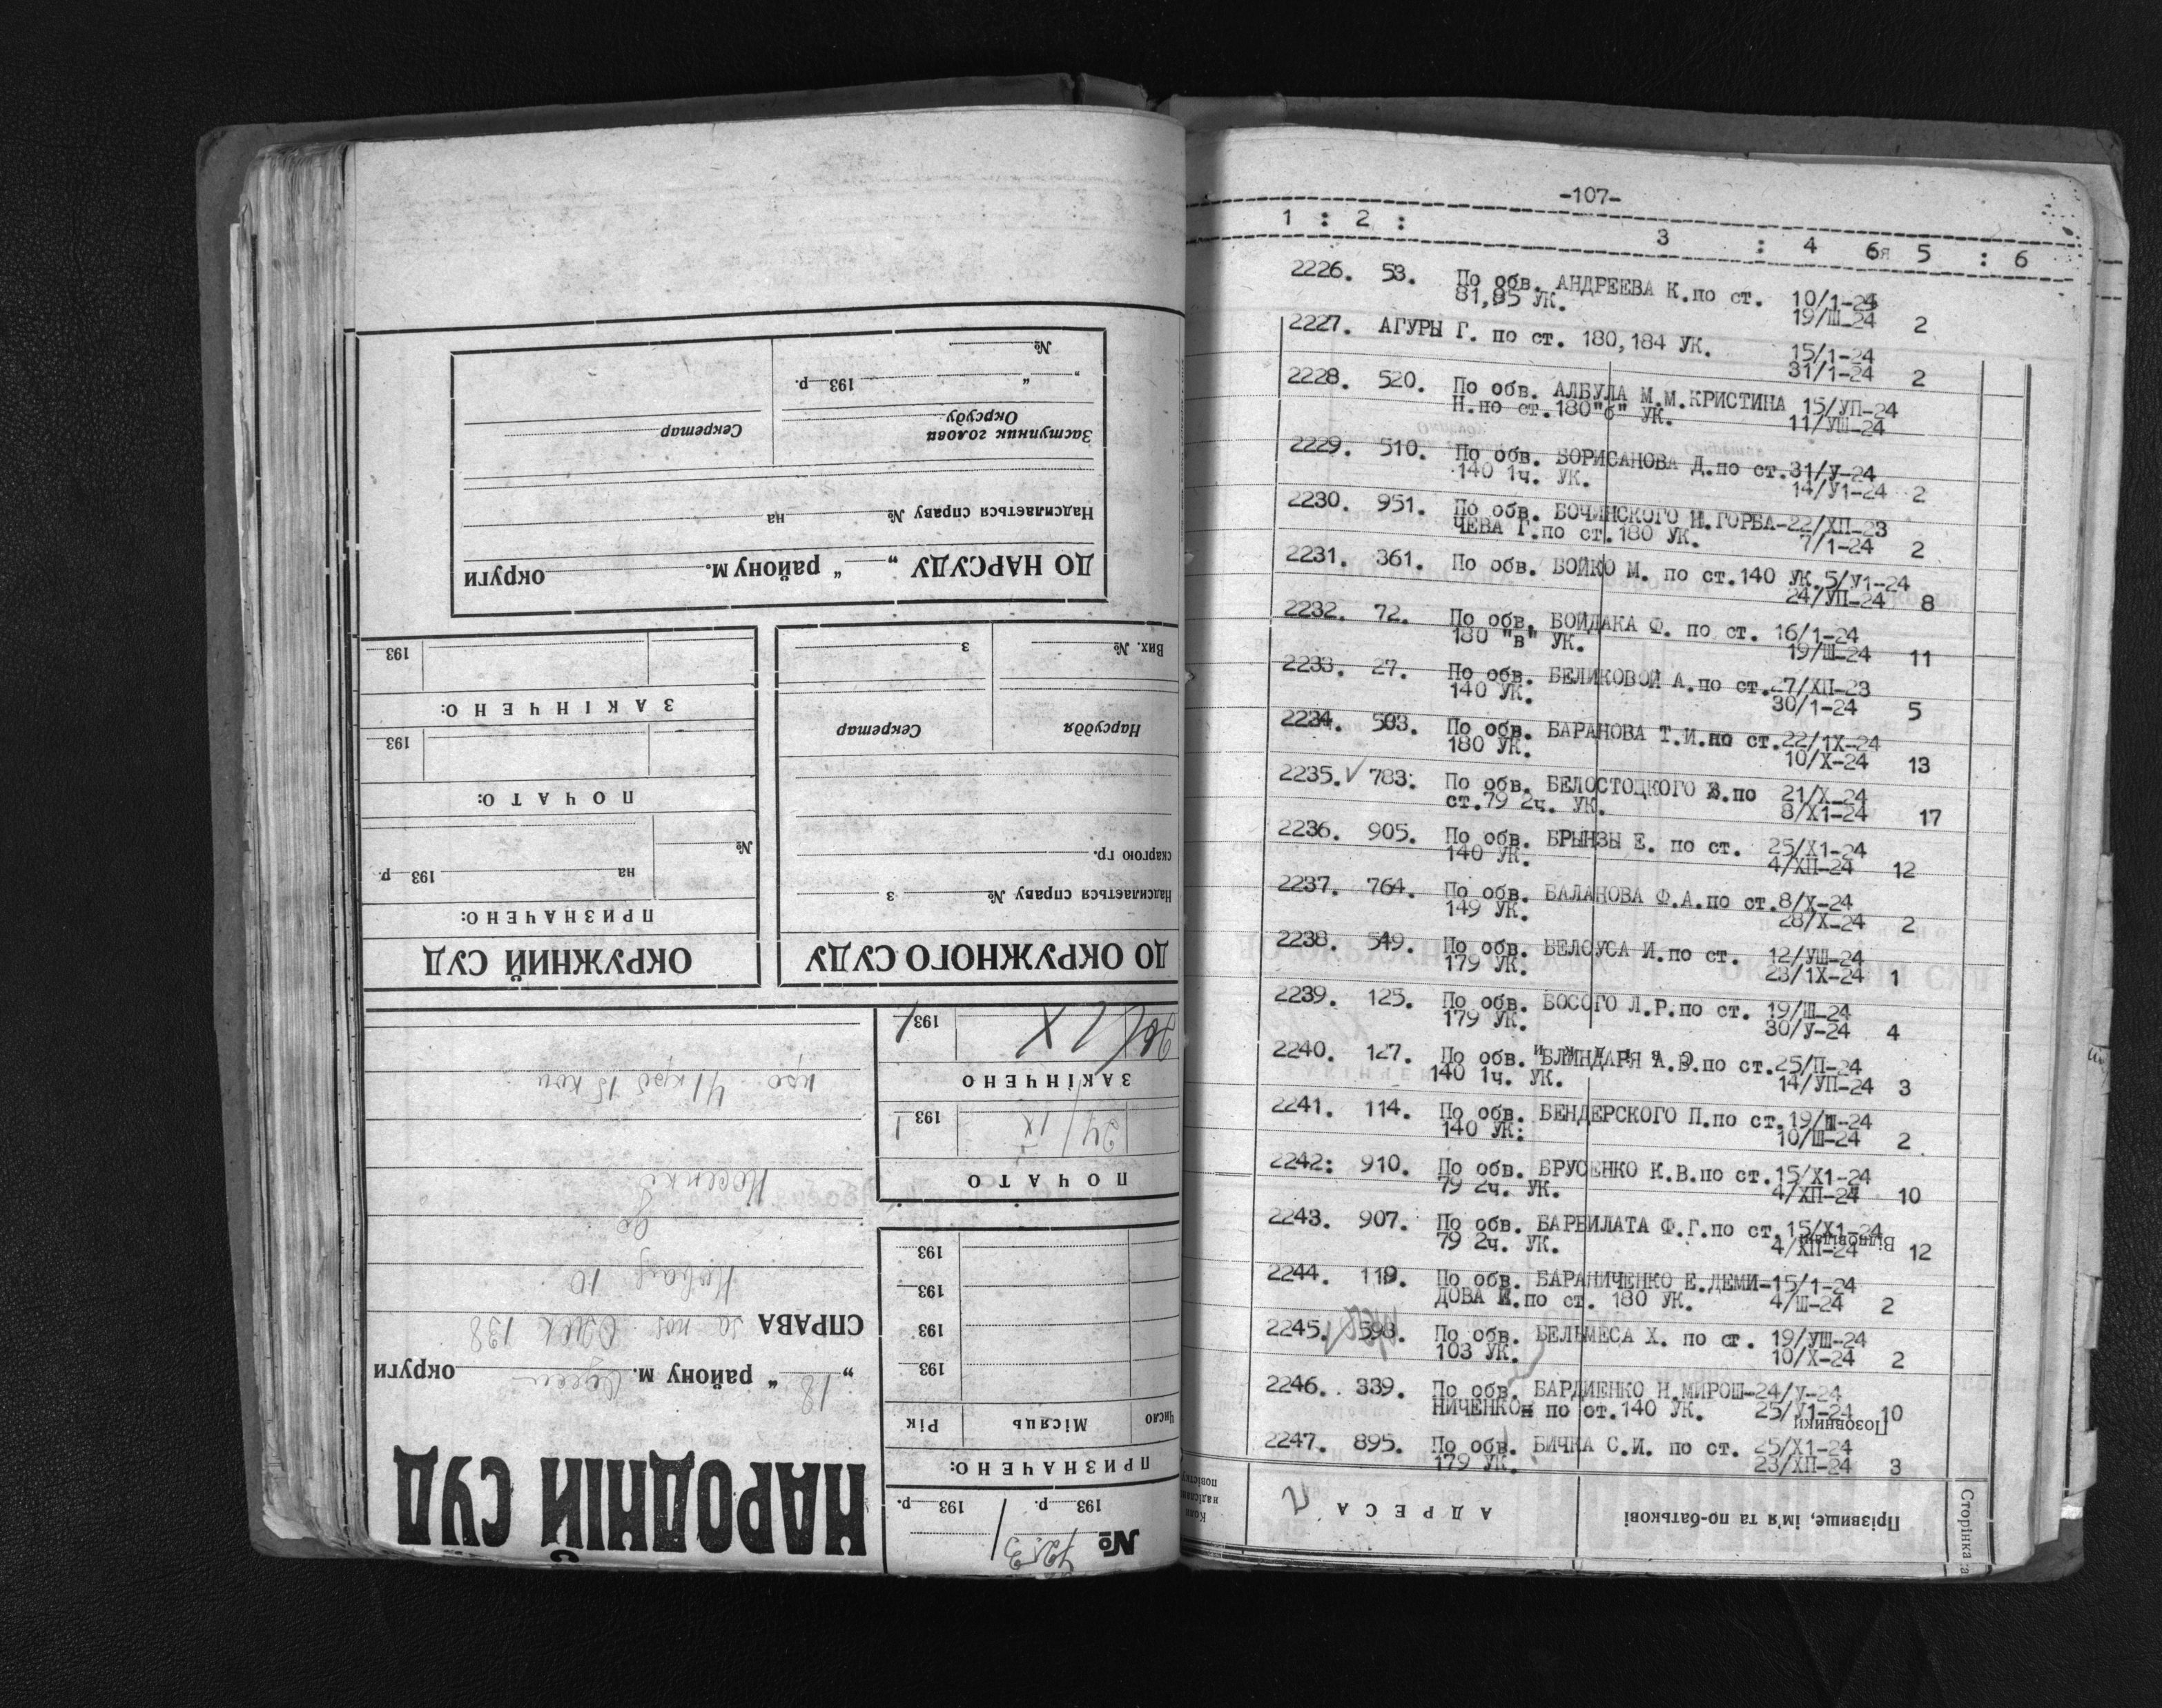 -107-
1 : 2 : 3 : 4 5 : 6
2226. 53. По обв. АНДРЕЕВА К.по ст. 10/1-24
81,95 УК. 19/Ш-24 2
2227. АГУРЫ Г. по ст. 180,184 УК. 15/1-24
31/1-24 2
2228. 520. По обв. АЛБУЛА М.М.КРИСТИНА 15/УП-24
Н.по ст.180"б" УК. 11/УШ-24
2229. 510. По обв. БОРИСАНОВА Д.по ст.31/У-24
140 1ч. УК. 14/У1-24 2
2230. 951. По обв. БОЧИНСКОГО И.ГОРБА-22/ХП-23
ЧЕВА Г.по ст.180 УК. 7/1-24 2
2231. 361. По обв. БОЙКО М. по ст.140 УК.5/У1-24
24/УП-24 8
2232. 72. По обв. БОЙДАКА Ф. по ст. 16/1-24
180 "в" УК. 19/Ш-24 11
2233. 27. По обв. БЕЛИКОВОЙ А.по ст.27/ХП-23
140 УК. 30/1-24 5
2234. 503. По обв. БАРАНОВА Т.И.по ст.22/1Х-24
180 УК. 10/Х-24 13
2235. 783. По обв. БЕЛОСТОЦКОГО З.по 21/Х-24
ст.79 2ч. УК. 8/Х1-24 17
2236. 905. По обв. БРЫНЗЫ Е. по ст. 25/Х1-24
140 УК. 4/ХП-24 12
2237. 764. По обв. БАЛАНОВА Ф.А.по ст.8/Х-24
149 УК. 28/Х-24 2
2238. 549. По обв. БЕЛОУСА И.по ст. 12/УШ-24
179 УК. 23/1Х-24 1
2239. 125. По обв. БОСОГО Л.Р.по ст. 19/Ш-24
179 УК. 30/У-24 4
2240. 127. По обв. БЛИНДАРЯ А.В.по ст.25/П-24
140 1ч. УК. 14/УП-24 3
2241. 114. По обв. БЕНДЕРСКОГО П.по ст.19/Ш-24
140 УК: 10/Ш-24 2
2242: 910. По обв. БРУСЕНКО К.В.по ст.15/Х1-24
79 2ч. УК. 4/ХП-24 10
2243. 907. По обв. БАРБИЛАТА Ф.Г.по ст.15/Х1-24
79 2ч. УК. 4/ХП-24 12
2244. 119. По обв. БАРАНИЧЕНКО Е.ДЕМИ-15/1-24
ДОВА И.по ст. 180 УК. 4/Ш-24 2
2245. 598. По обв. БЕЛЬМЕСА Х. по ст. 19/УШ-24
103 УК. 10/Х-24 2
2246. 339. По обв. БАРДИЕНКО Н.МИРОШ-24/У-24
НИЧЕНКО по ст.140 УК. 25/У1-24 10
2247. 895. По обв. БИЧКА С.И. по ст. 25/Х1-24
179 УК. 23/ХП-24 3
Відповідачі
Позовники
Сторінка та
Прізвище, ім'я та по-батькові
АДРЕСА
Коли надіслано повістку
№ 7253
193 р. 193 р.
ПРИЗНАЧЕНО:
Число Місяць Рік
193
193
193
193
ПОЧАТО
24 IX 193 1
ЗАКІНЧЕНО
26 IX 193 1
НАРОДНІЙ СУД
„ 18 “ району м. Одеси округи
СПРАВА за поз. 138
10
до
Носенко
про 41 крб 15 коп
ДО ОКРУЖНОГО СУДУ
Надсилається справу № з
скаргою гр.
Нарсуддя Секретар
Вих. № з
ОКРУЖНИЙ СУД
ПРИЗНАЧЕНО:
на 193 р
№
ПОЧАТО:
193
ЗАКІНЧЕНО:
193
ДО НАРСУДУ „ “ району м. округи
Надсилається справу № на
Заступник голови Окрсуду Секретар
„ “ 193 р.
№